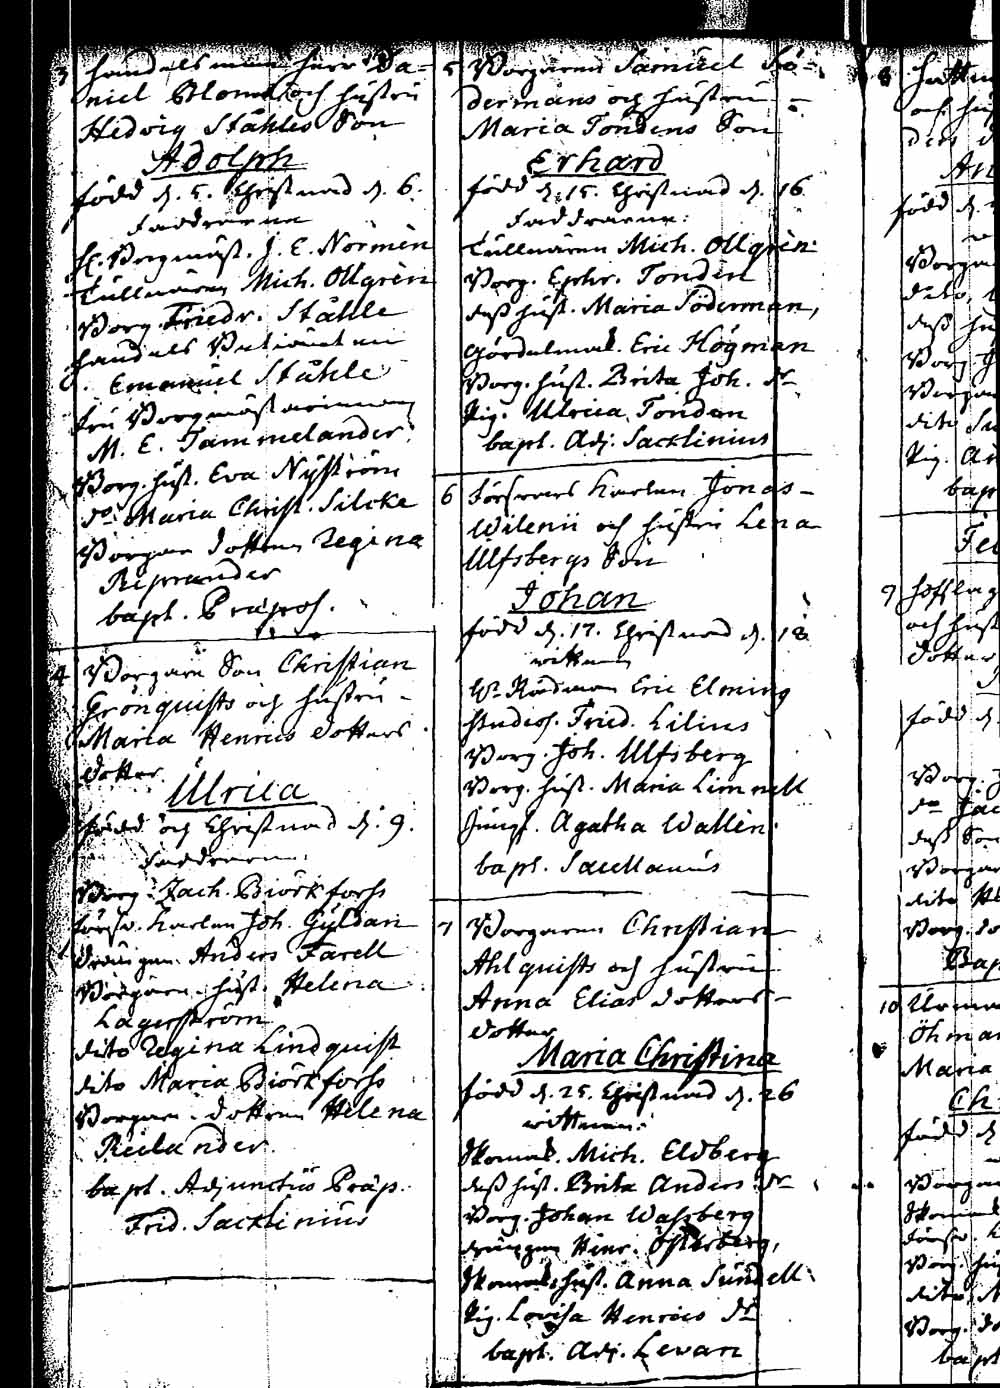 3 Handels man Herr Da=
niel Blom och hustru
Hedvig Ståhles Son
Adolph
född d. 5. Christnad d. 6.
Faddrarne
H. Borgmäst. J. E. Normèn
Tullnären Mich. Ollgrèn
Borg. Friedr. Ståhle
Handels
Emanuel Ståhle
Fru Borgmästarinnan
M. E. Tammelander.
Borg. hust. Eva Nyström
do Maria Christ. Silcke
Borgare dottren Regina
Reprander
bapt. Præpos.
4 Borgare Son Christian
Grönquists och hustru -
Maria Henrics dotters
dotter
Ulrica
född och Christnad d. 9.
Faddrarne.
Borg. Zach. Biörkforss
försv. karlen Joh. Gyldan
drängen Anders Farell
Borgare hust. Helena
Lagerström
dito Regina Lindquist
dito Maria Biörkforss
Borgare dottren Helena
Reilander
bapt. Adjunctus Præp.
Frid. Sacklinius
5 Borgaren Samuel Sö=
dermans och hustru =
Maria Tondens Son
Erhard
född d. 15. Christnad d. 16
Faddrarne:
Tullnären Mich. Ollgrèn.
Borg. Ephr. Tonden
dess hust. Maria Söderman,
Gördelmak. Eric Högman
Borg. hust. Brita Joh. dr
Pig. Ulrica Tonden
bapt. Adj. Sacklinius
6 Försvars karlen Jonas -
Wilenii och hustru Lena
Ulfsbergs Son
Johan
född d. 17. Christnad d. 18
wittnen
Hr Rådman Eric Elming
Studios. Fried. Lilius
Borg. Joh. Ulfsberg
Borg. hust. Maria Limnell
Jungf. Agatha Wallèn.
bapt. Sacellanus
7 Borgaren Christian
Ahlquists och hustru
Anna Elias dotters -
dotter
Maria Christina
född d. 25. Christnad d. 26
wittnen:
Skomak. Mich. Eldberg
dess hust. Brita Anders dr
Borg. Johan Wahsberg
drängen Hinr. Österberg,
Skomak. hust. Anna Sundell
Pig. Lovisa Henrics dr
bapt. Adj. Levan
8
och
An
född d.
Borgar
dito,
dess hu
Borg. J
dito Su
Pig. An
bap
9
och hust
dotter
född d
Borg.
do Jac
dess Son
Borgar
dito He
Borg. do
Bap
10
Öhman
Maria
Ch
född d
Borgar
Skomak
försv. k
Borg. hu
dito, M
Borg. do
bapt